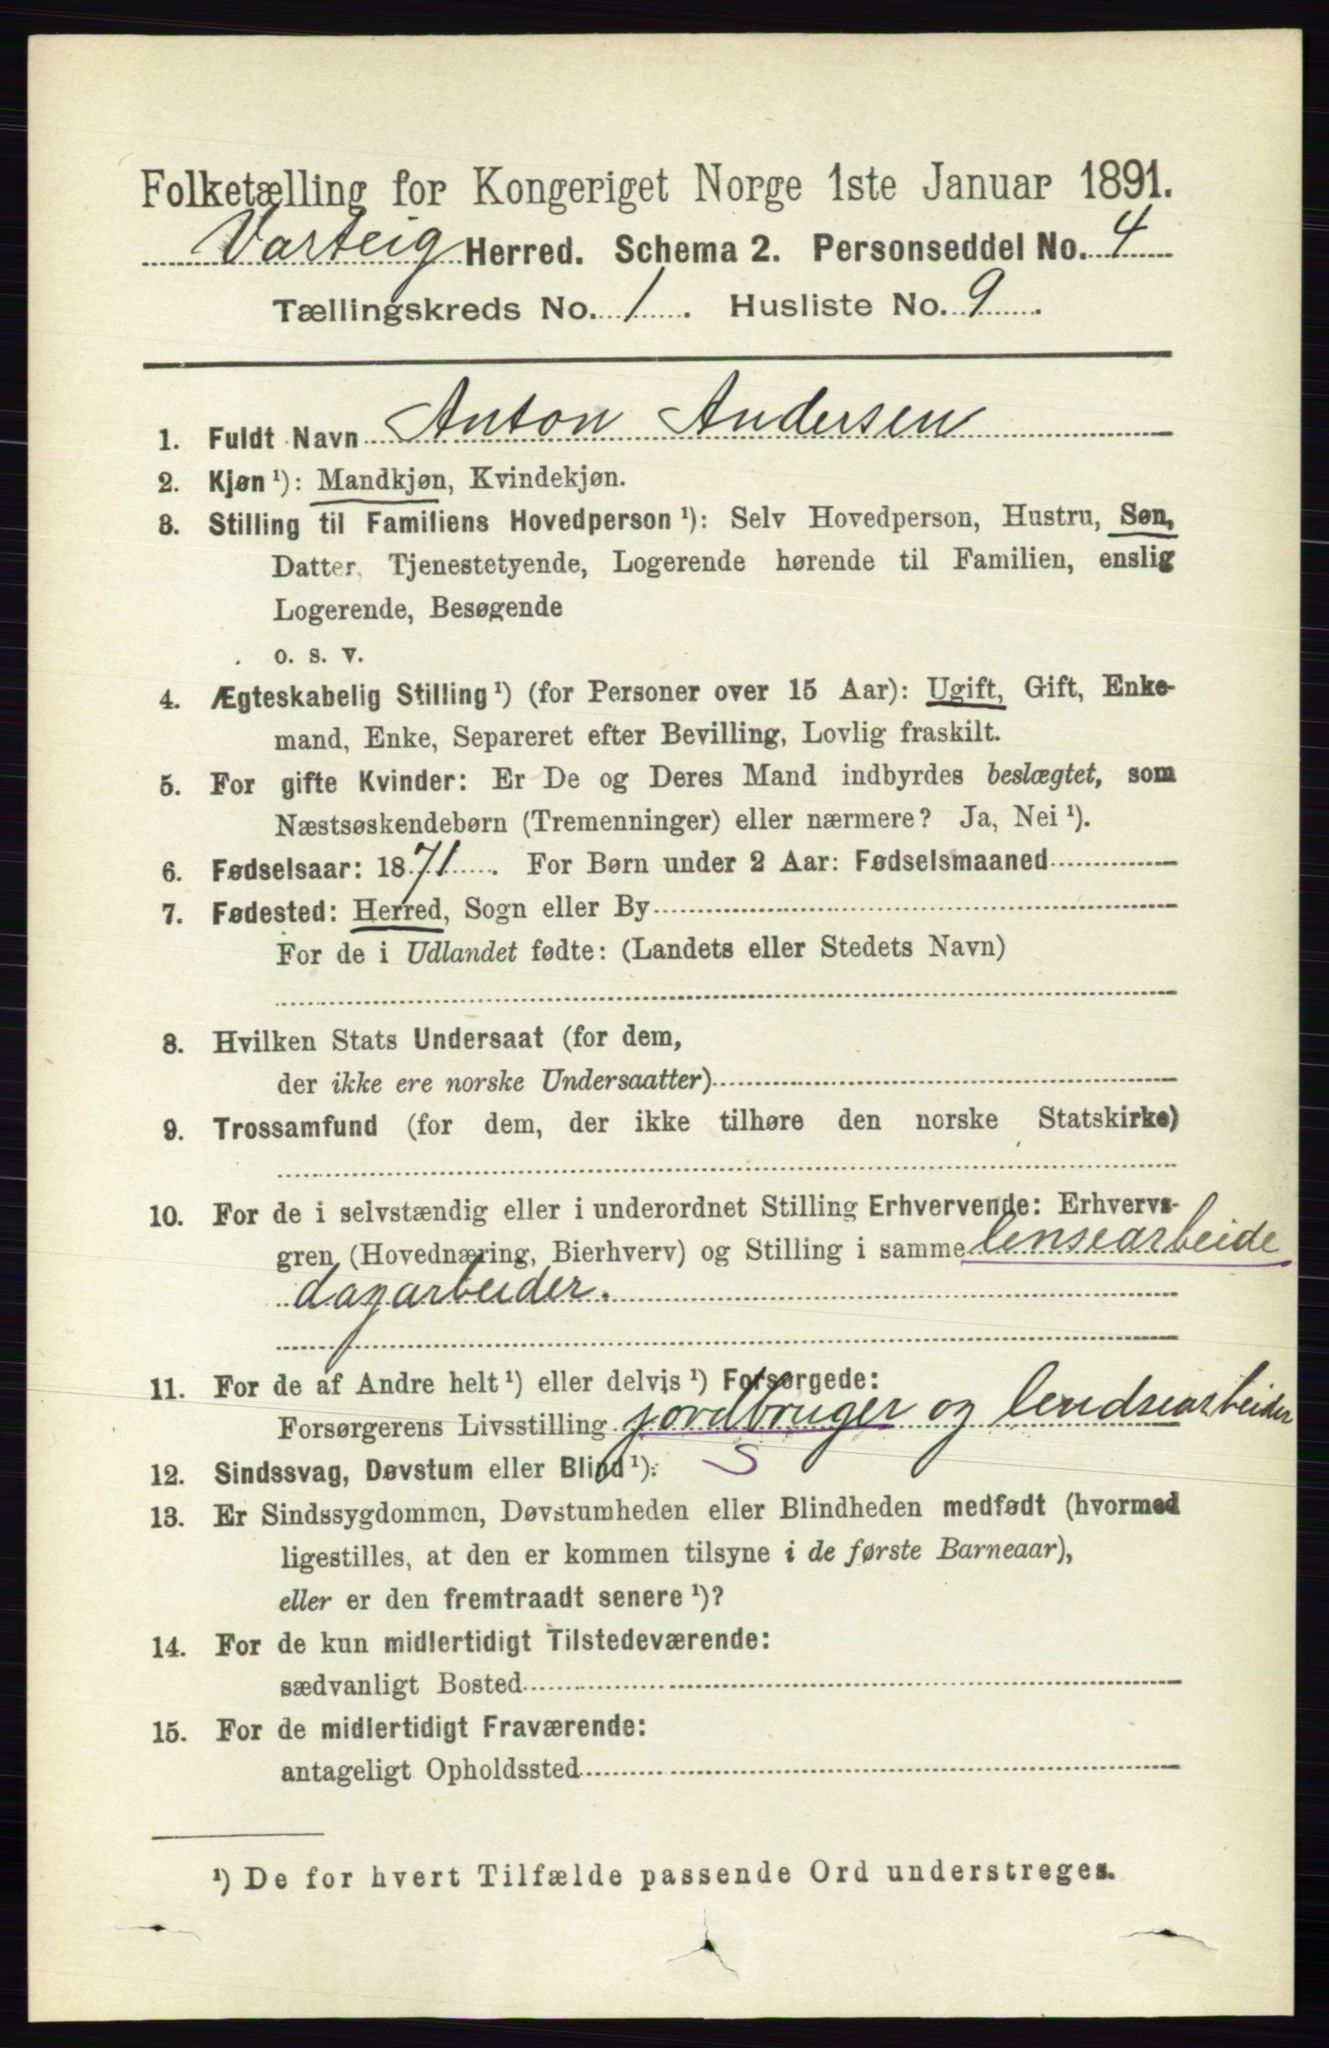 Folketælling for Kongeriget Norge 1ste Januar 1891.
Varteig Herred. Schema 2. Personseddel No. 4
Tællingskreds No. 1. Husliste No. 9.
1. Fuldt Navn Anton Andersen
2. Kjøn ¹): Mandkjøn, Kvindekjøn.
3. Stilling til Familiens Hovedperson ¹): Selv Hovedperson, Hustru, Søn,
Datter, Tjenestetyende, Logerende hørende til Familien, enslig
Logerende, Besøgende
o. s. v.
4. Ægteskabelig Stilling ¹) (for Personer over 15 Aar): Ugift, Gift, Enke-
mand, Enke, Separeret efter Bevilling, Lovlig fraskilt.
5. For gifte Kvinder: Er De og Deres Mand indbyrdes beslægtet, som
Næstsøskendebørn (Tremenninger) eller nærmere? Ja, Nei ¹).
6. Fødselsaar: 1871. For Børn under 2 Aar: Fødselsmaaned
7. Fødested: Herred, Sogn eller By
For de i Udlandet fødte: (Landets eller Stedets Navn)
8. Hvilken Stats Undersaat (for dem,
der ikke ere norske Undersaatter)
9. Trossamfund (for dem, der ikke tilhøre den norske Statskirke)
10. For de i selvstændig eller i underordnet Stilling Erhvervende: Erhvervs-
gren (Hovednæring, Bierhverv) og Stilling i samme lensearbeide
dagarbeider.
11. For de af Andre helt ¹) eller delvis ¹) Forsørgede:
Forsørgerens Livsstilling jordbruger og lendsearbeider
12. Sindssvag, Døvstum eller Blind ¹). S
13. Er Sindssygdommen, Døvstumheden eller Blindheden medfødt (hvormed
ligestilles, at den er kommen tilsyne i de første Barneaar),
eller er den fremtraadt senere ¹)?
14. For de kun midlertidigt Tilstedeværende:
sædvanligt Bosted
15. For de midlertidigt Fraværende:
antageligt Opholdssted
¹) De for hvert Tilfælde passende Ord understreges.